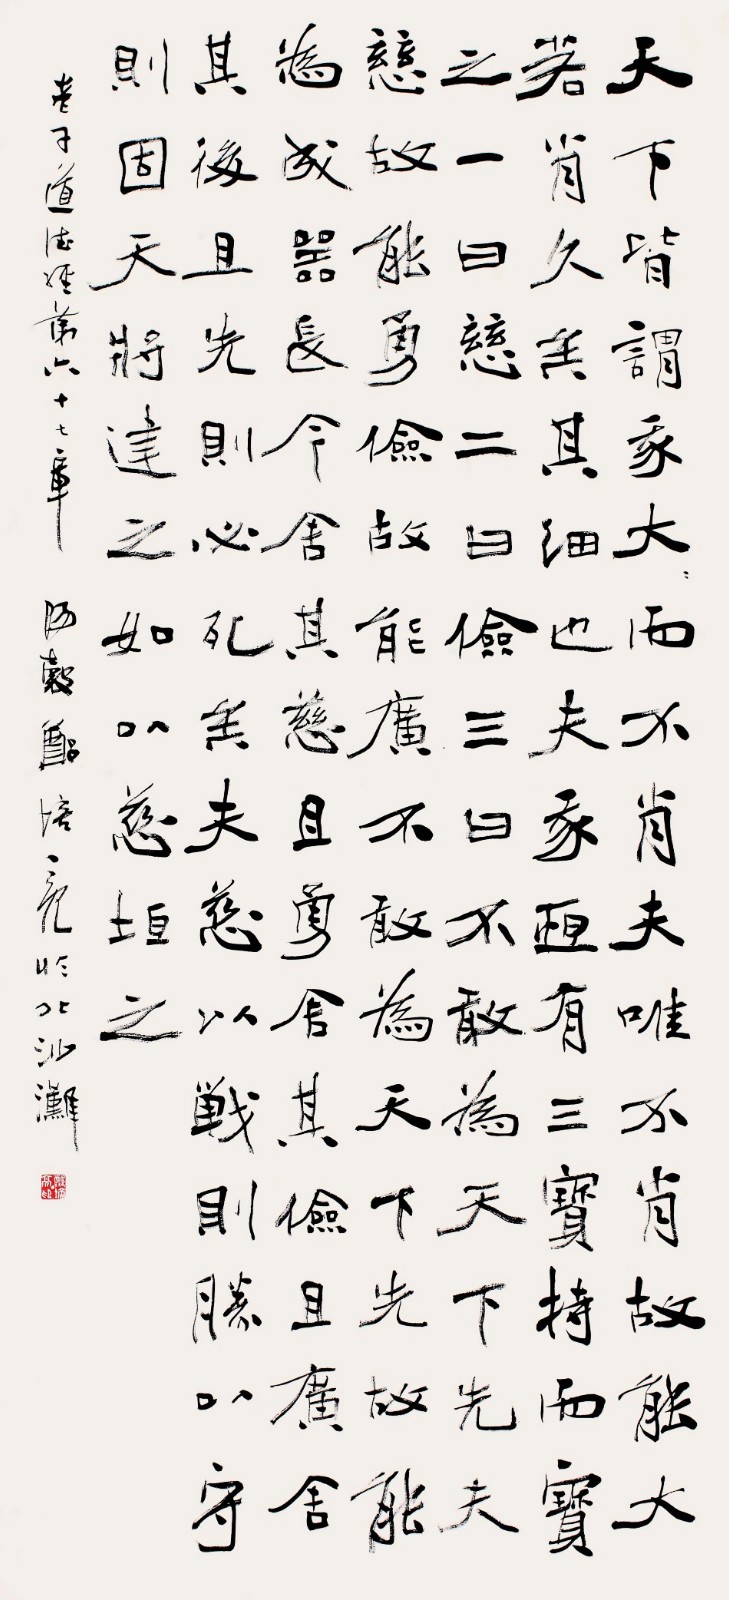 天下皆謂我大〻而不肖夫唯不肖故能大
若肖久矣其細也夫我恆有三寶持而寶
之一曰慈二曰儉三曰不敢為天下先夫
慈故能勇儉故能廣不敢為天下先故能
為成器長今舍其慈且勇舍其儉且廣舍
其後且先則必死矣夫慈以戦則勝以守
則固天將建之如以慈垣之
老子道德經第六十七章 陽穀 培亮於北沙灘